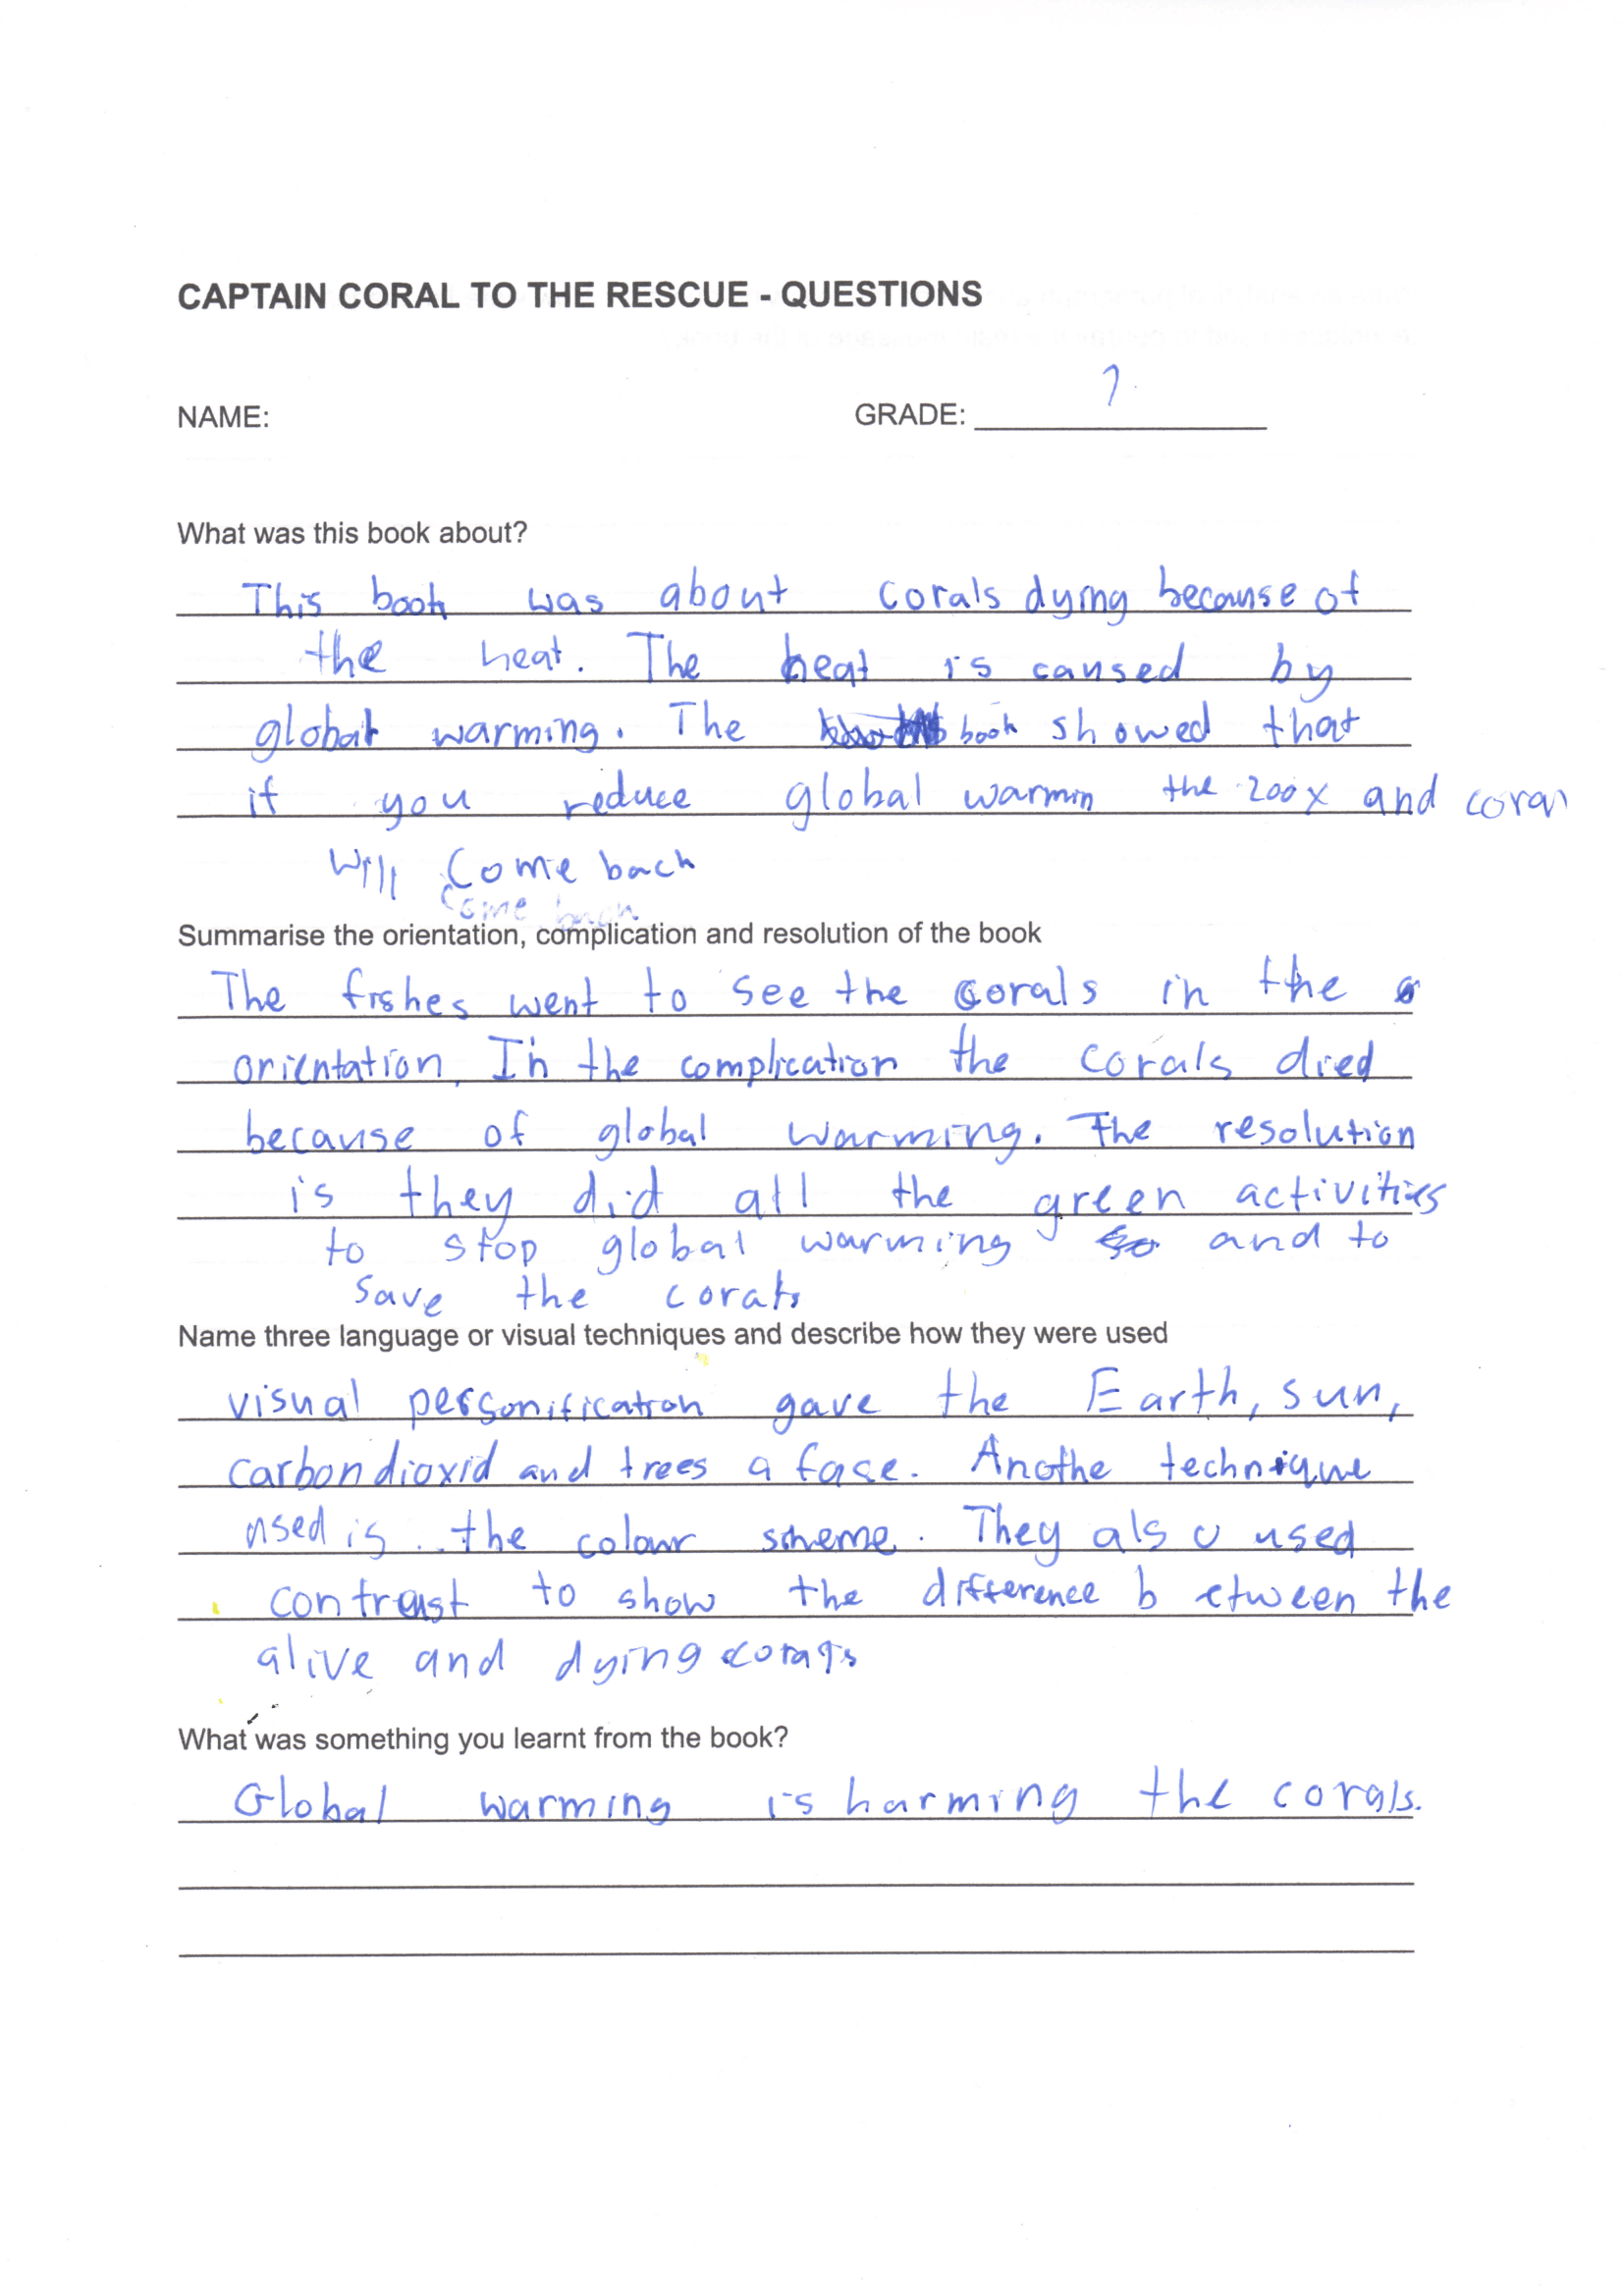 CAPTAIN CORAL TO THE RESCUE - QUESTIONS
NAME:
GRADE: 7
What was this book about?
This book was about corals dying because of
the heat. The heat is caused by
global warming. The book showed that
if you reduce global warmin the zoox and coral
Will Come back
come back
Summarise the orientation, complication and resolution of the book
The fishes went to see the corals in the
orientation. In the complication the corals died
because of global warming. The resolution
is they did all the green activities
to stop global warming so and to
save the corals
Name three language or visual techniques and describe how they were used
visual personification gave the Earth, sun,
carbondioxid and trees a fase. Anothe technique
used is the colour scheme. They also used
contrast to show the difference between the
alive and dying corals
What was something you learnt from the book?
Global warming is harming the corals.